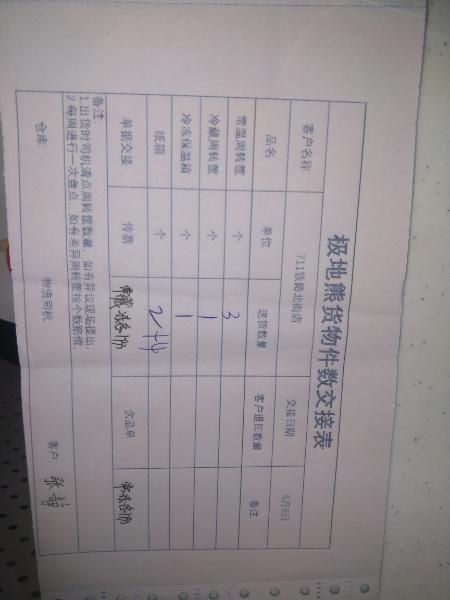 极地熊货物件数交接表
客户名称 711铁路北街店 交接日期: 5月8日
品名 单位 送货数量 客户退瓦数量 备注
常温周转筐 个 3
冷藏周转筐 个 1
冷冻保温箱 个 1
纸箱 个
单据交接 传票 欠品单
备注:
1.出货时司机清点周转筐数量,如有异议现场提出.
2.每周进行一次盘点,如有差异周转筐按个数赔偿.
仓库 物流司机 客户